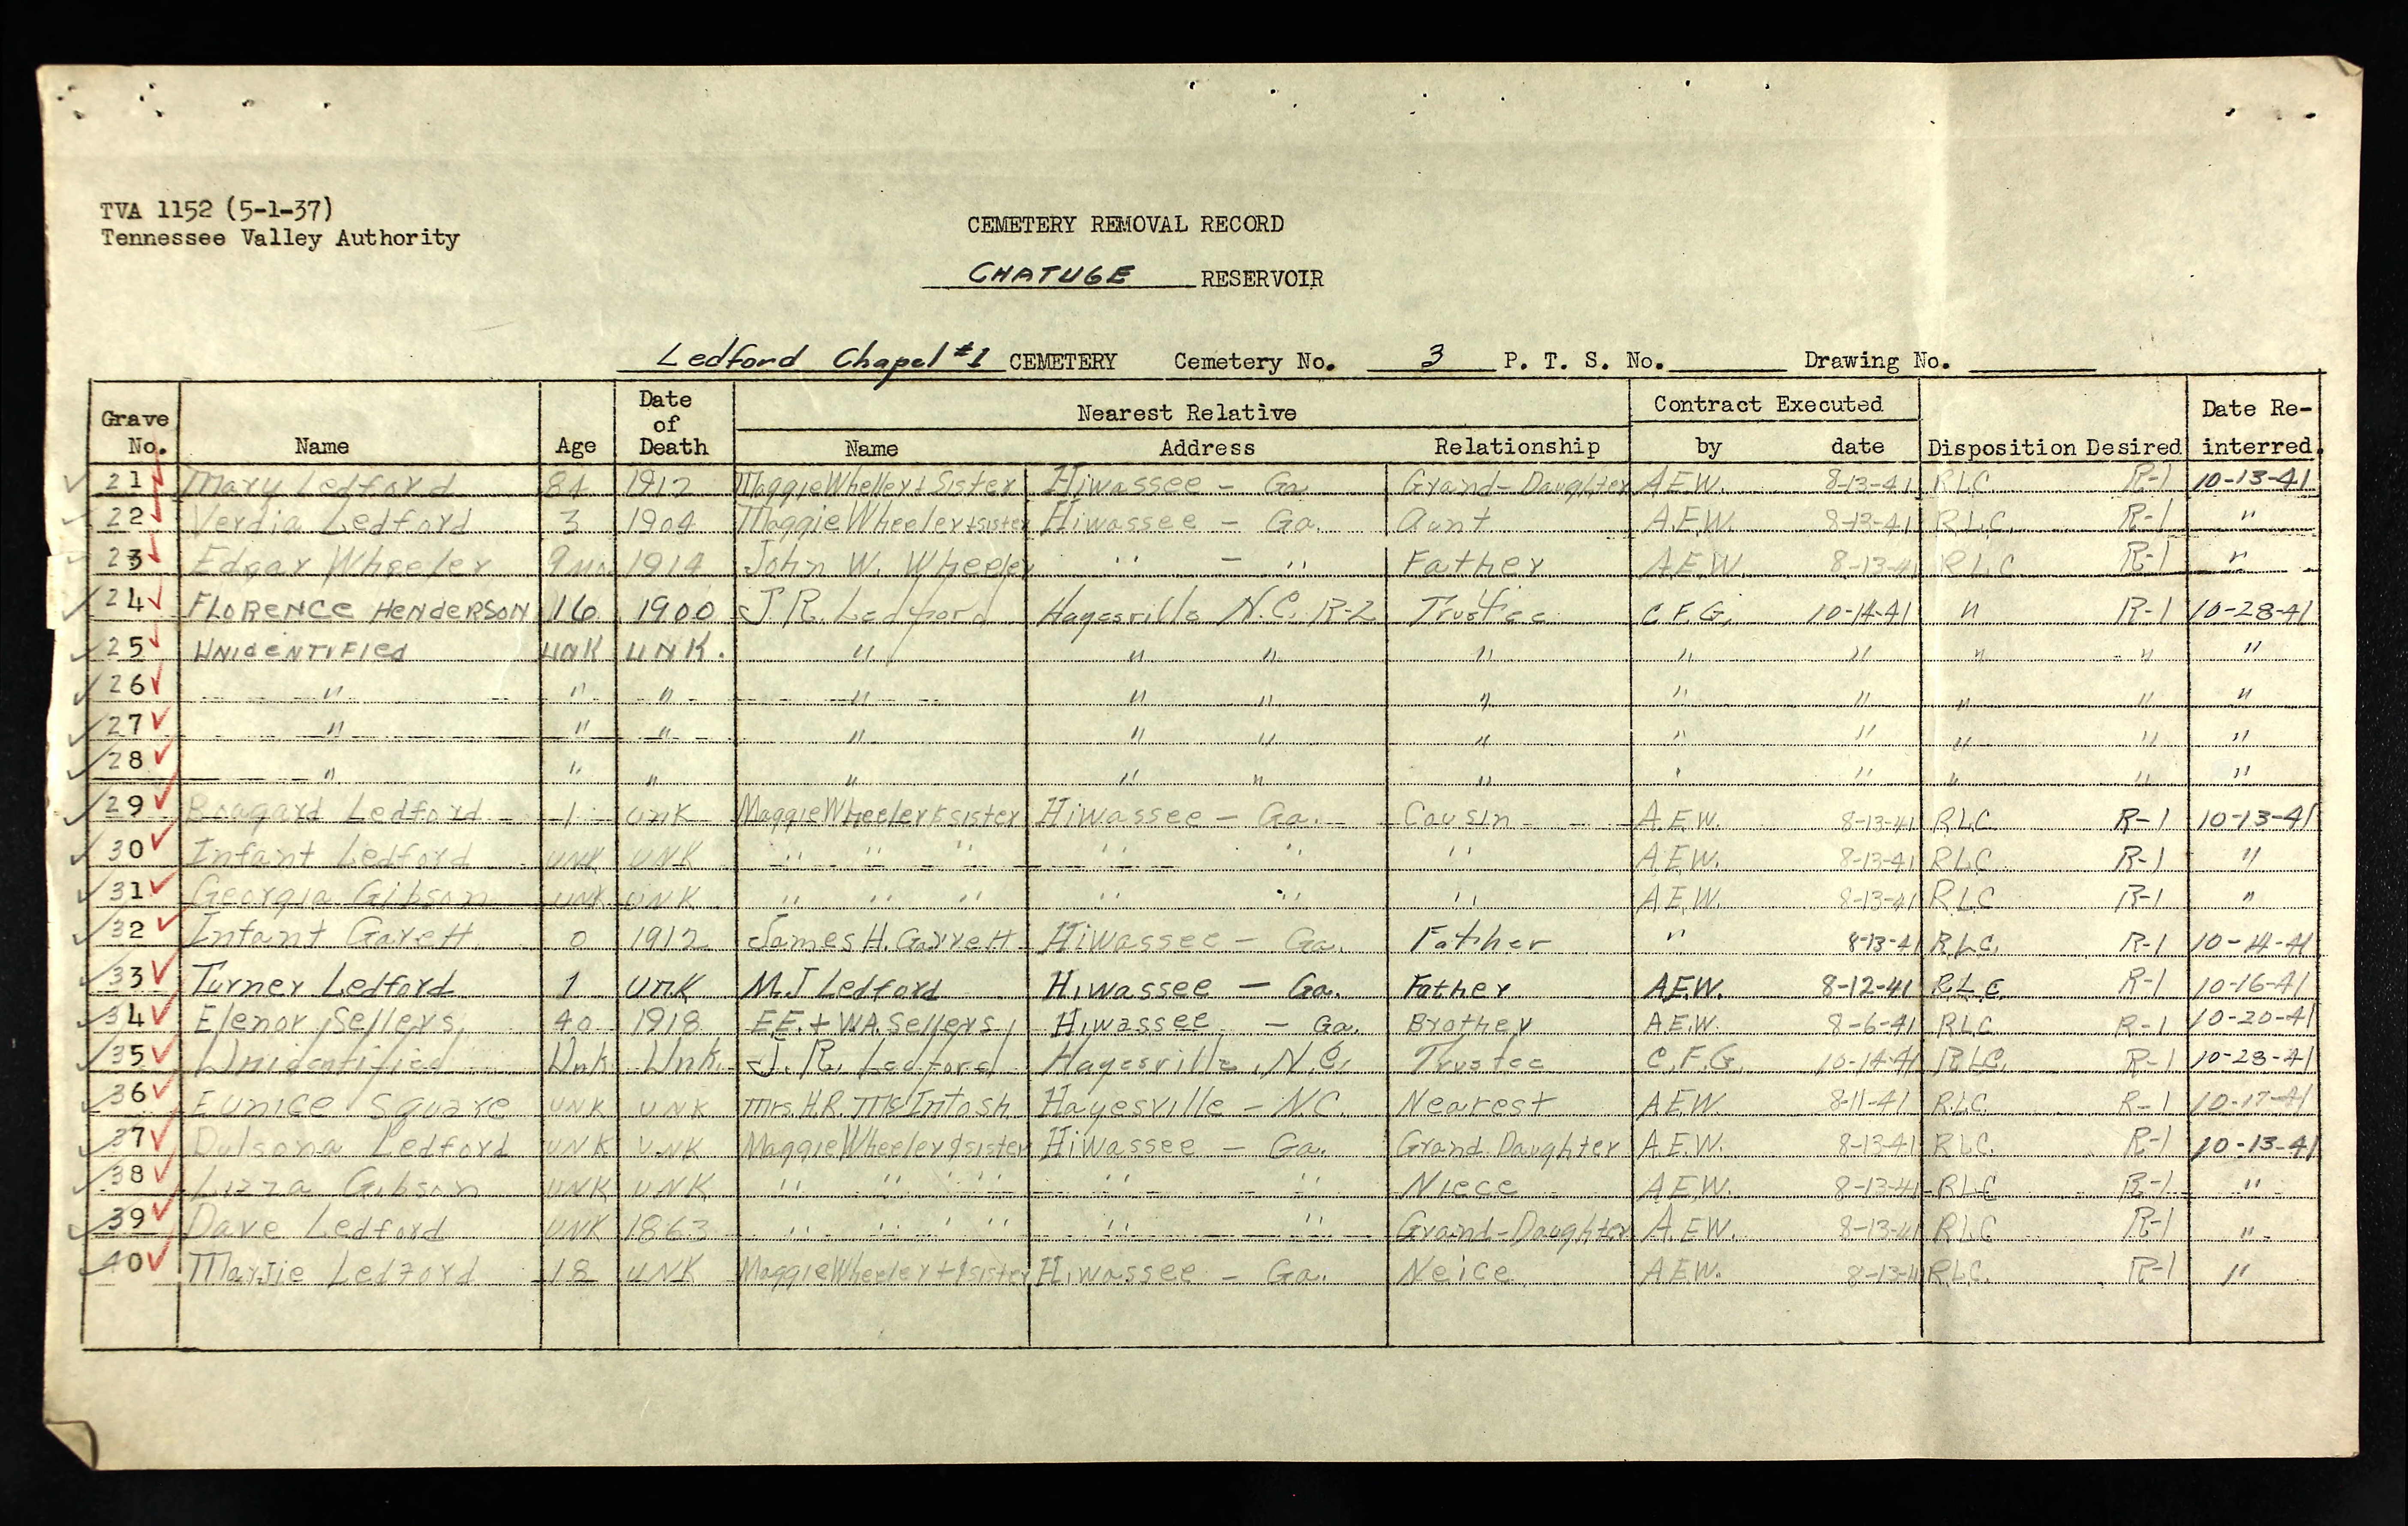 TVA 1152 (5-1-37)
Tennessee Valley Authority
CEMETERY REMOVAL RECORD
CHATUGE RESERVOIR
Ledford Chapel #1 CEMETERY Cemetery No. 3 P. T. S. No. Drawing No.
Grave No. Name Age Date of Death Nearest Relative Name Address Relationship Contract Executed by date Disposition Desired Date Re-interred.
21 Mary Ledford 84 1912 Maggie Wheller & Sister Hiwassee - Ga Grand-Daughter A.E.W. 8-13-41 RLC R-1 10-13-41
22 Verdia Ledford 3 1904 Maggie Wheeler & sister Hiwassee - Ga. Aunt A.E.W. 8-13-41 R.L.C. R-1 "
23 Edgar Wheeler 9 mo 1914 John W. Wheeler " - " Father A.E.W. 8-13-41 RLC R-1 "
24 FLORENCE HENDERSON 16 1900 J.R. Ledford Hayesville N.C. R-2 Trustee C.F.G. 10-14-41 " R-1 10-28-41
25 UNIDENTIFIED UNK UNK. " " " " " " " " "
26 " " " " " " " " " " " "
27 " " " " " " " " " " " "
28 " " " " " " " " " " " "
29 Ledford 1 UNK Maggie Wheeler & sister Hiwassee - Ga. Cousin A.E.W. 8-13-41 RLC R-1 10-13-41
30 Infant Ledford UNK UNK " " " " " " A.E.W. 8-13-41 RLC R-1 "
31 Georgia Gibson UNK UNK " " " " " " A.E.W. 8-13-41 RLC R-1 "
32 Infant Garett 0 1912 James H. Garrett Hiwassee - Ga. Father " 8-13-41 R.L.C. R-1 10-14-41
33 Turner Ledford 1 UNK M.J Ledford Hiwassee - Ga. Father A.E.W. 8-12-41 R.L.C. R-1 10-16-41
34 Elenor Sellers 40 1918 E.E. + W.A. Sellers Hiwassee - Ga. Brother A.E.W. 8-6-41 RLC R-1 10-20-41
35 Unidentified Unk Unk. J. R. Ledford Hayesville, N.C. Trustee C.F.G. 10-14-41 R.L.C. R-1 10-23-41
36 Eunice Square UNK UNK Mrs. H.R. McIntosh Hayesville - N.C. Nearest A.E.W. 8-11-41 R.L.C. R-1 10-17-41
37 Ledford UNK UNK Maggie Wheeler & sister Hiwassee - Ga. Grand Daughter A.E.W. 8-13-41 RLC. R-1 10-13-41
38 Gibson UNK UNK " " " " " " Niece A.E.W. 8-13-41 RLC R-1 "
39 Dave Ledford UNK 1863 " " " " " " Grand-Daughter A.E.W. 8-13-41 RLC R-1 "
40 Ledford 18 UNK Maggie Wheeler + sister Hiwassee - Ga. Neice A.E.W. 8-13-41 R.L.C. R-1 "